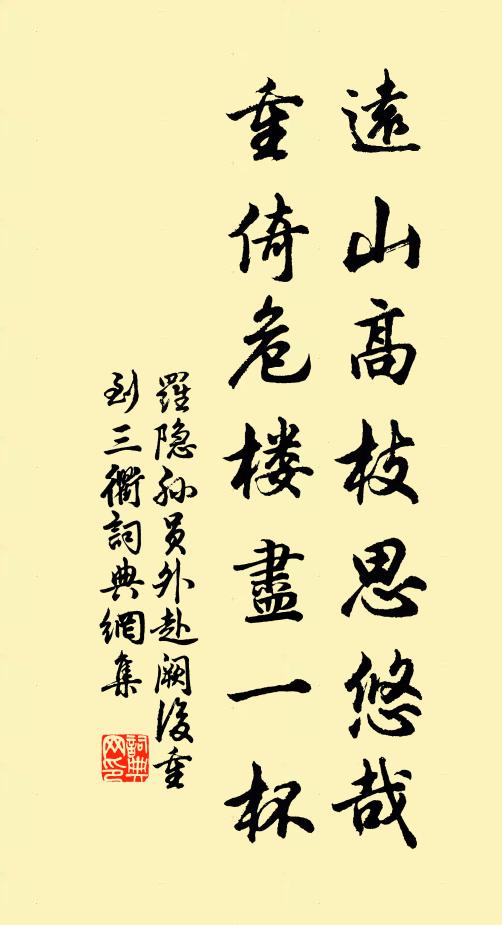 遠山高枝思悠哉
重倚危楼盡一杯
羅隐孙员外赴阙後重
到三衢詞典網集
詞典网印